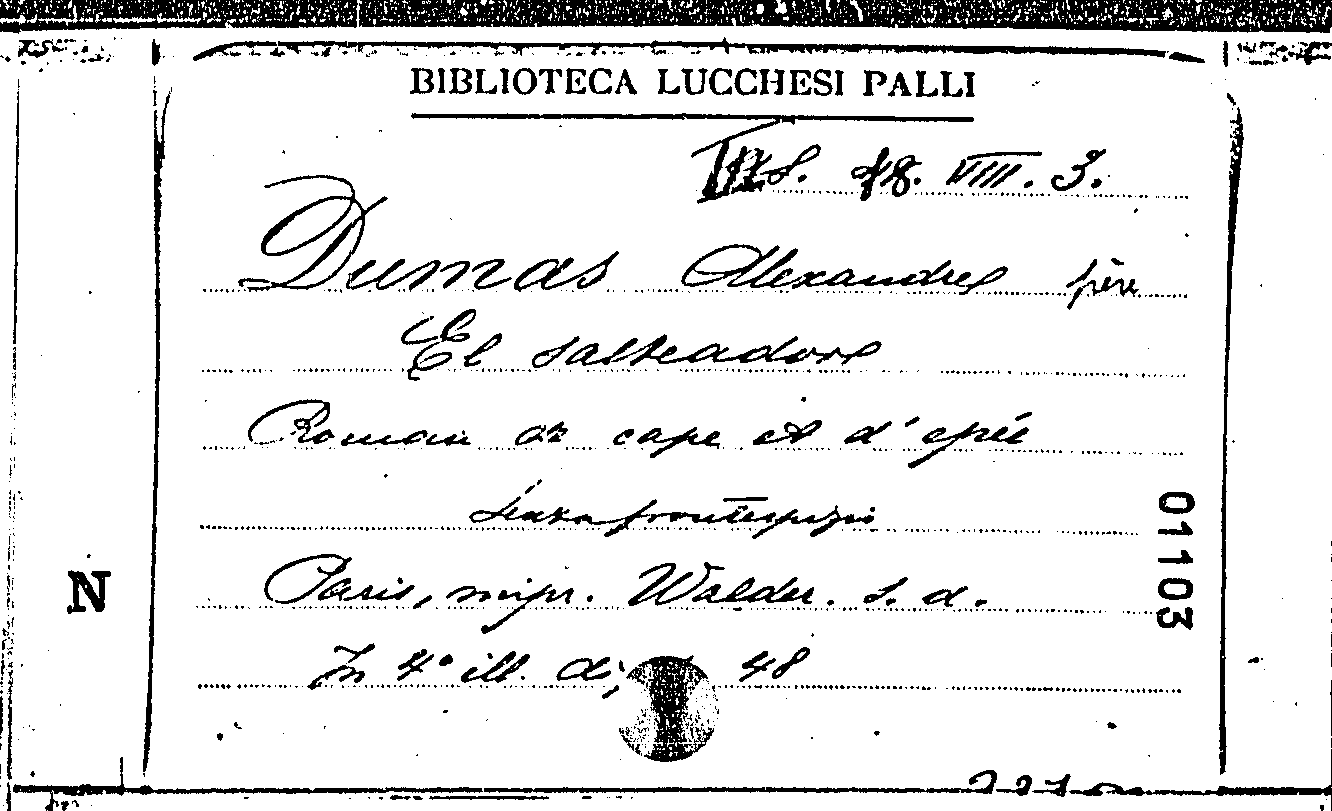 BIBLIOTECA LUCCHESI PALLI
S. 48. VIII. 3.
Dumas Alexandre père
El Salteadore
Roman de cape et d'epée
Senza frontespizio
Paris, impr. Walder. s. d.
In 4° ill. di 48
N
01103